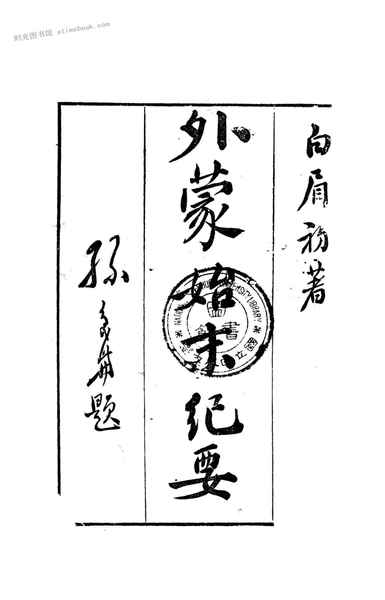 时光图书馆 stimebook.com
白眉初著
外蒙始末纪要
孙
题